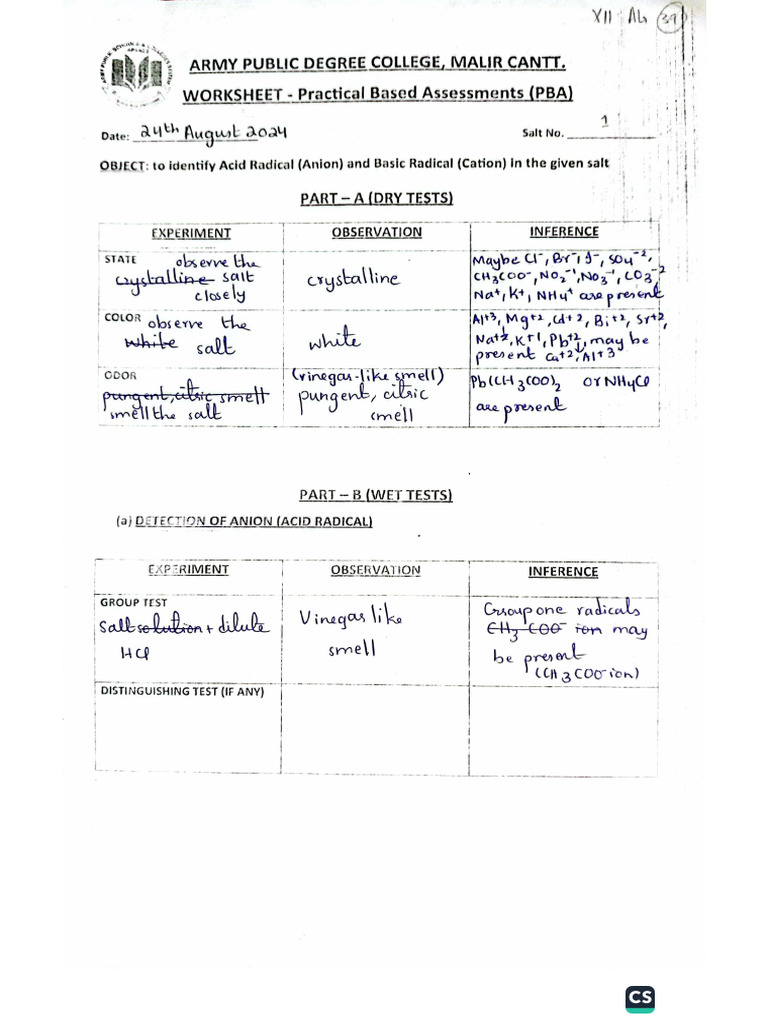 XII AG 39
ARMY PUBLIC DEGREE COLLEGE, MALIR CANTT.
WORKSHEET - Practical Based Assessments (PBA)
Date: 24th August 2024 Salt No. 1
OBJECT: to identify Acid Radical (Anion) and Basic Radical (Cation) in the given salt
PART – A (DRY TESTS)
EXPERIMENT OBSERVATION INFERENCE
STATE observe the
crystalline salt
closely
crystalline
Maybe Cl⁻, Br⁻, I⁻, SO4⁻²,
CH3COO⁻, NO2⁻¹, NO3⁻¹, CO3⁻²
Na+, K+, NH4+ are present
COLOR observe the
white salt
white
Al+3, Mg+2, Cd+2, Bi+2, Sr+2,
Na+2, K+1, Pb+2, may be
present Ca+2, Al+3
ODOR
pungent, citric smell
smell the salt
(vinegar-like smell)
pungent, citric
smell
Pb(CH3COO)2 or NH4Cl
are present
PART – B (WET TESTS)
(a) DETECTION OF ANION (ACID RADICAL)
EXPERIMENT OBSERVATION INFERENCE
GROUP TEST
Salt solution + dilute
HCl
Vinegar like
smell
Group one radicals
CH3COO⁻ ion may
be present
(CH3COO⁻ion)
DISTINGUISHING TEST (IF ANY)
CS